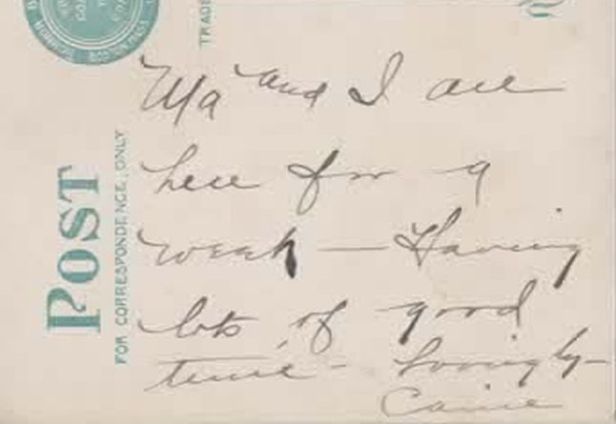 TRADE
POST
FOR CORRESPONDENCE ONLY
Ma and I are
here for a
week — Having
lots of good
time - Lovingly -